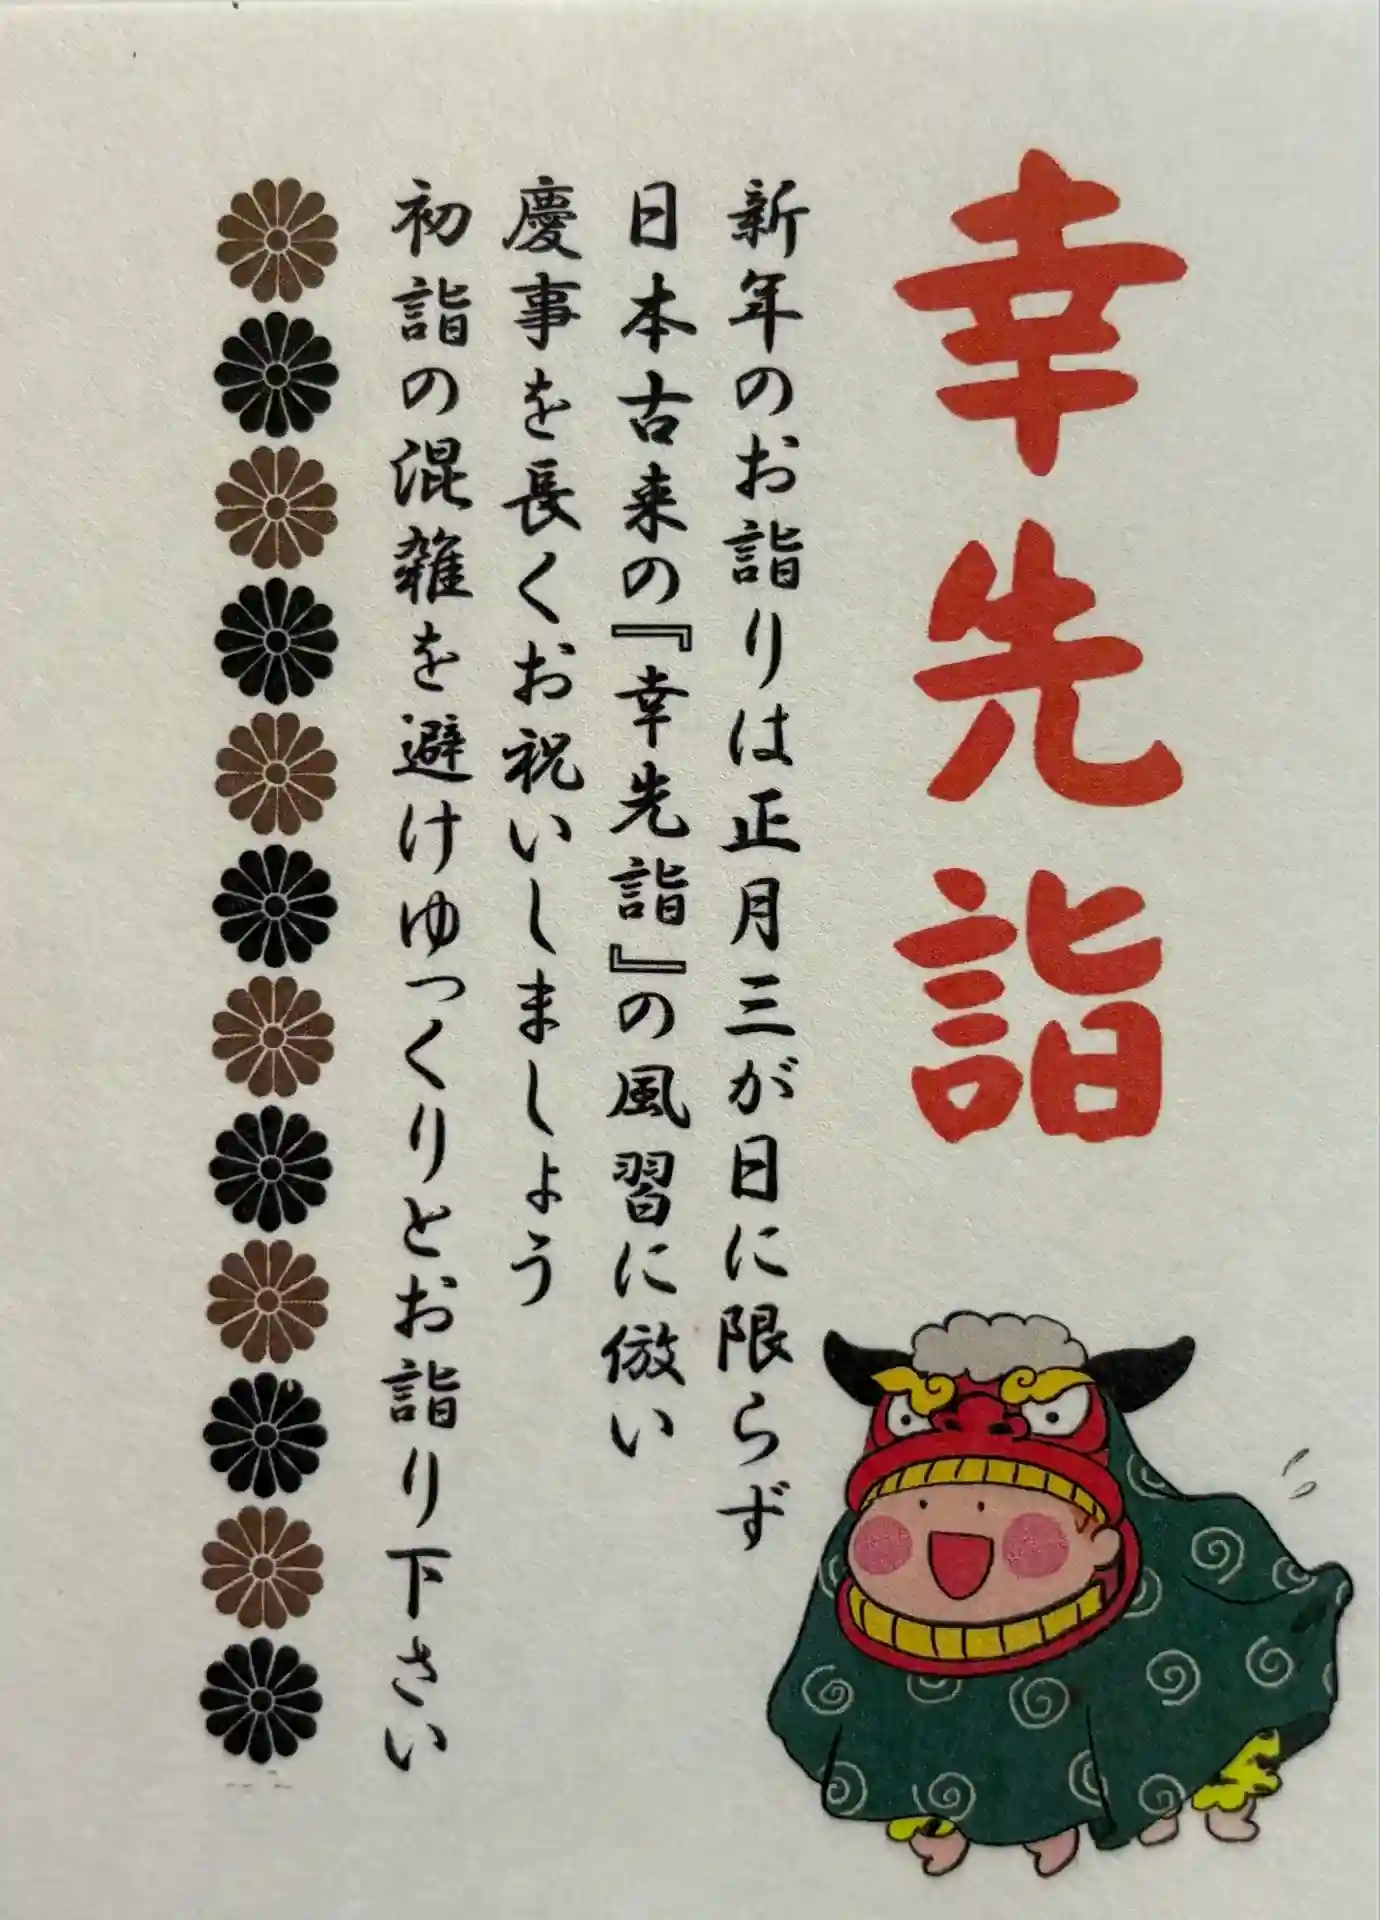 幸先詣
新年のお詣りは正月三が日に限らず
日本古来の『幸先詣』の風習に倣い
慶事を長くお祝いしましょう
初詣の混雑を避けゆっくりとお詣り下さい